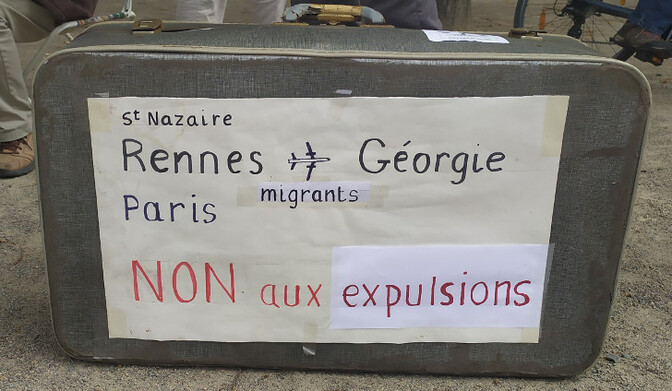 St Nazaire
Rennes Géorgie
migrants
Paris
NON aux expulsions